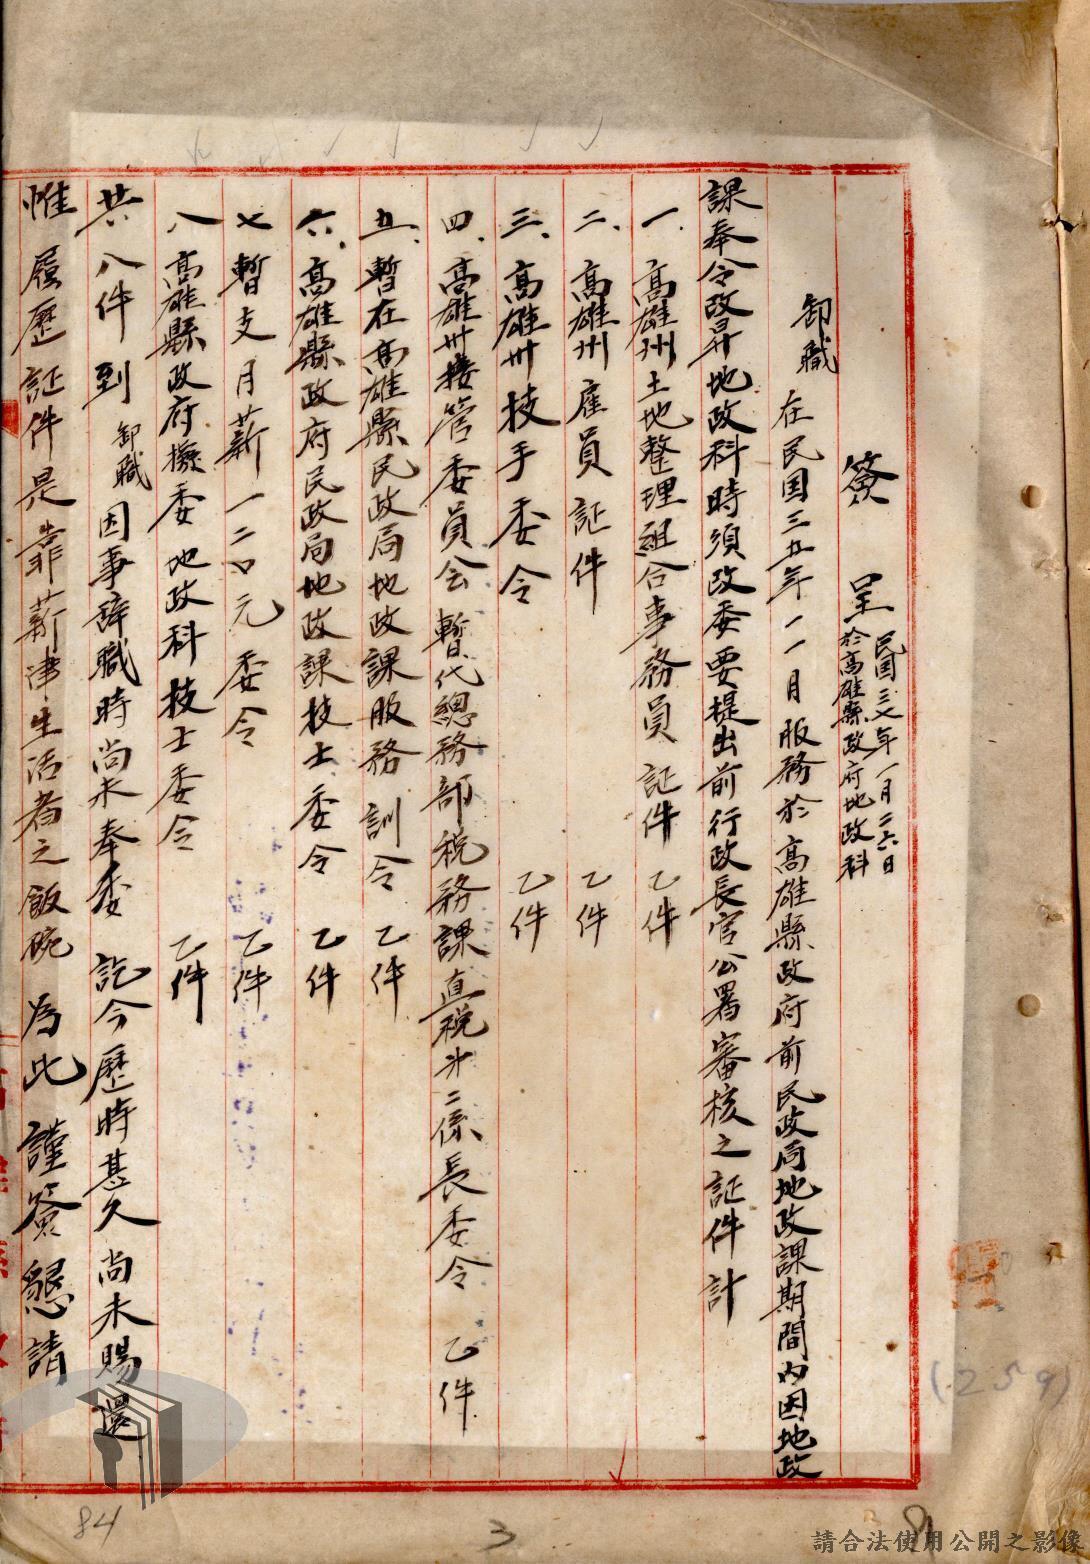 簽呈 民国三七年一月二六日
於高雄縣政府地政科
卸職在民国三五年一一月服務於高雄縣政府前民政局地政課期間内因地政
課奉令改昇地政科時須改委要提出前行政長官公署審核之証件計
一、高雄州土地整理組合事務員証件 乙件
二、高雄州雇員証件 乙件
三、高雄卅技手委令 乙件
四、高雄卅接管委員会暫代總務部税務課直税才二係長委令 乙件
五、暫在高雄縣民政局地政課服務訓令 乙件
六、高雄縣政府民政局地政課技士委令 乙件
七 暫支月薪一二〇元委令 乙件
八 高雄縣政府擬委地政科技士委令 乙件
共八件到卸職因事辞職時尚未奉委 訖今歷時甚久尚未賜還
惟履歷証件是靠薪津生活者之飯碗 為此謹簽懇請
(259)
84
3
請合法使用公開之影像